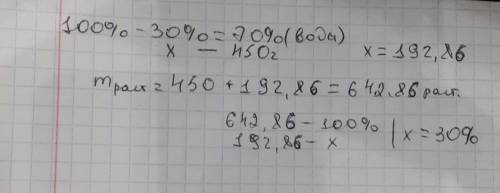 100% - 30% = 70% (вода)
x — 450г x = 192,86
mраст = 450 + 192,86 = 642,86 раст.
642,86 - 100%
192,86 - x | x = 30%